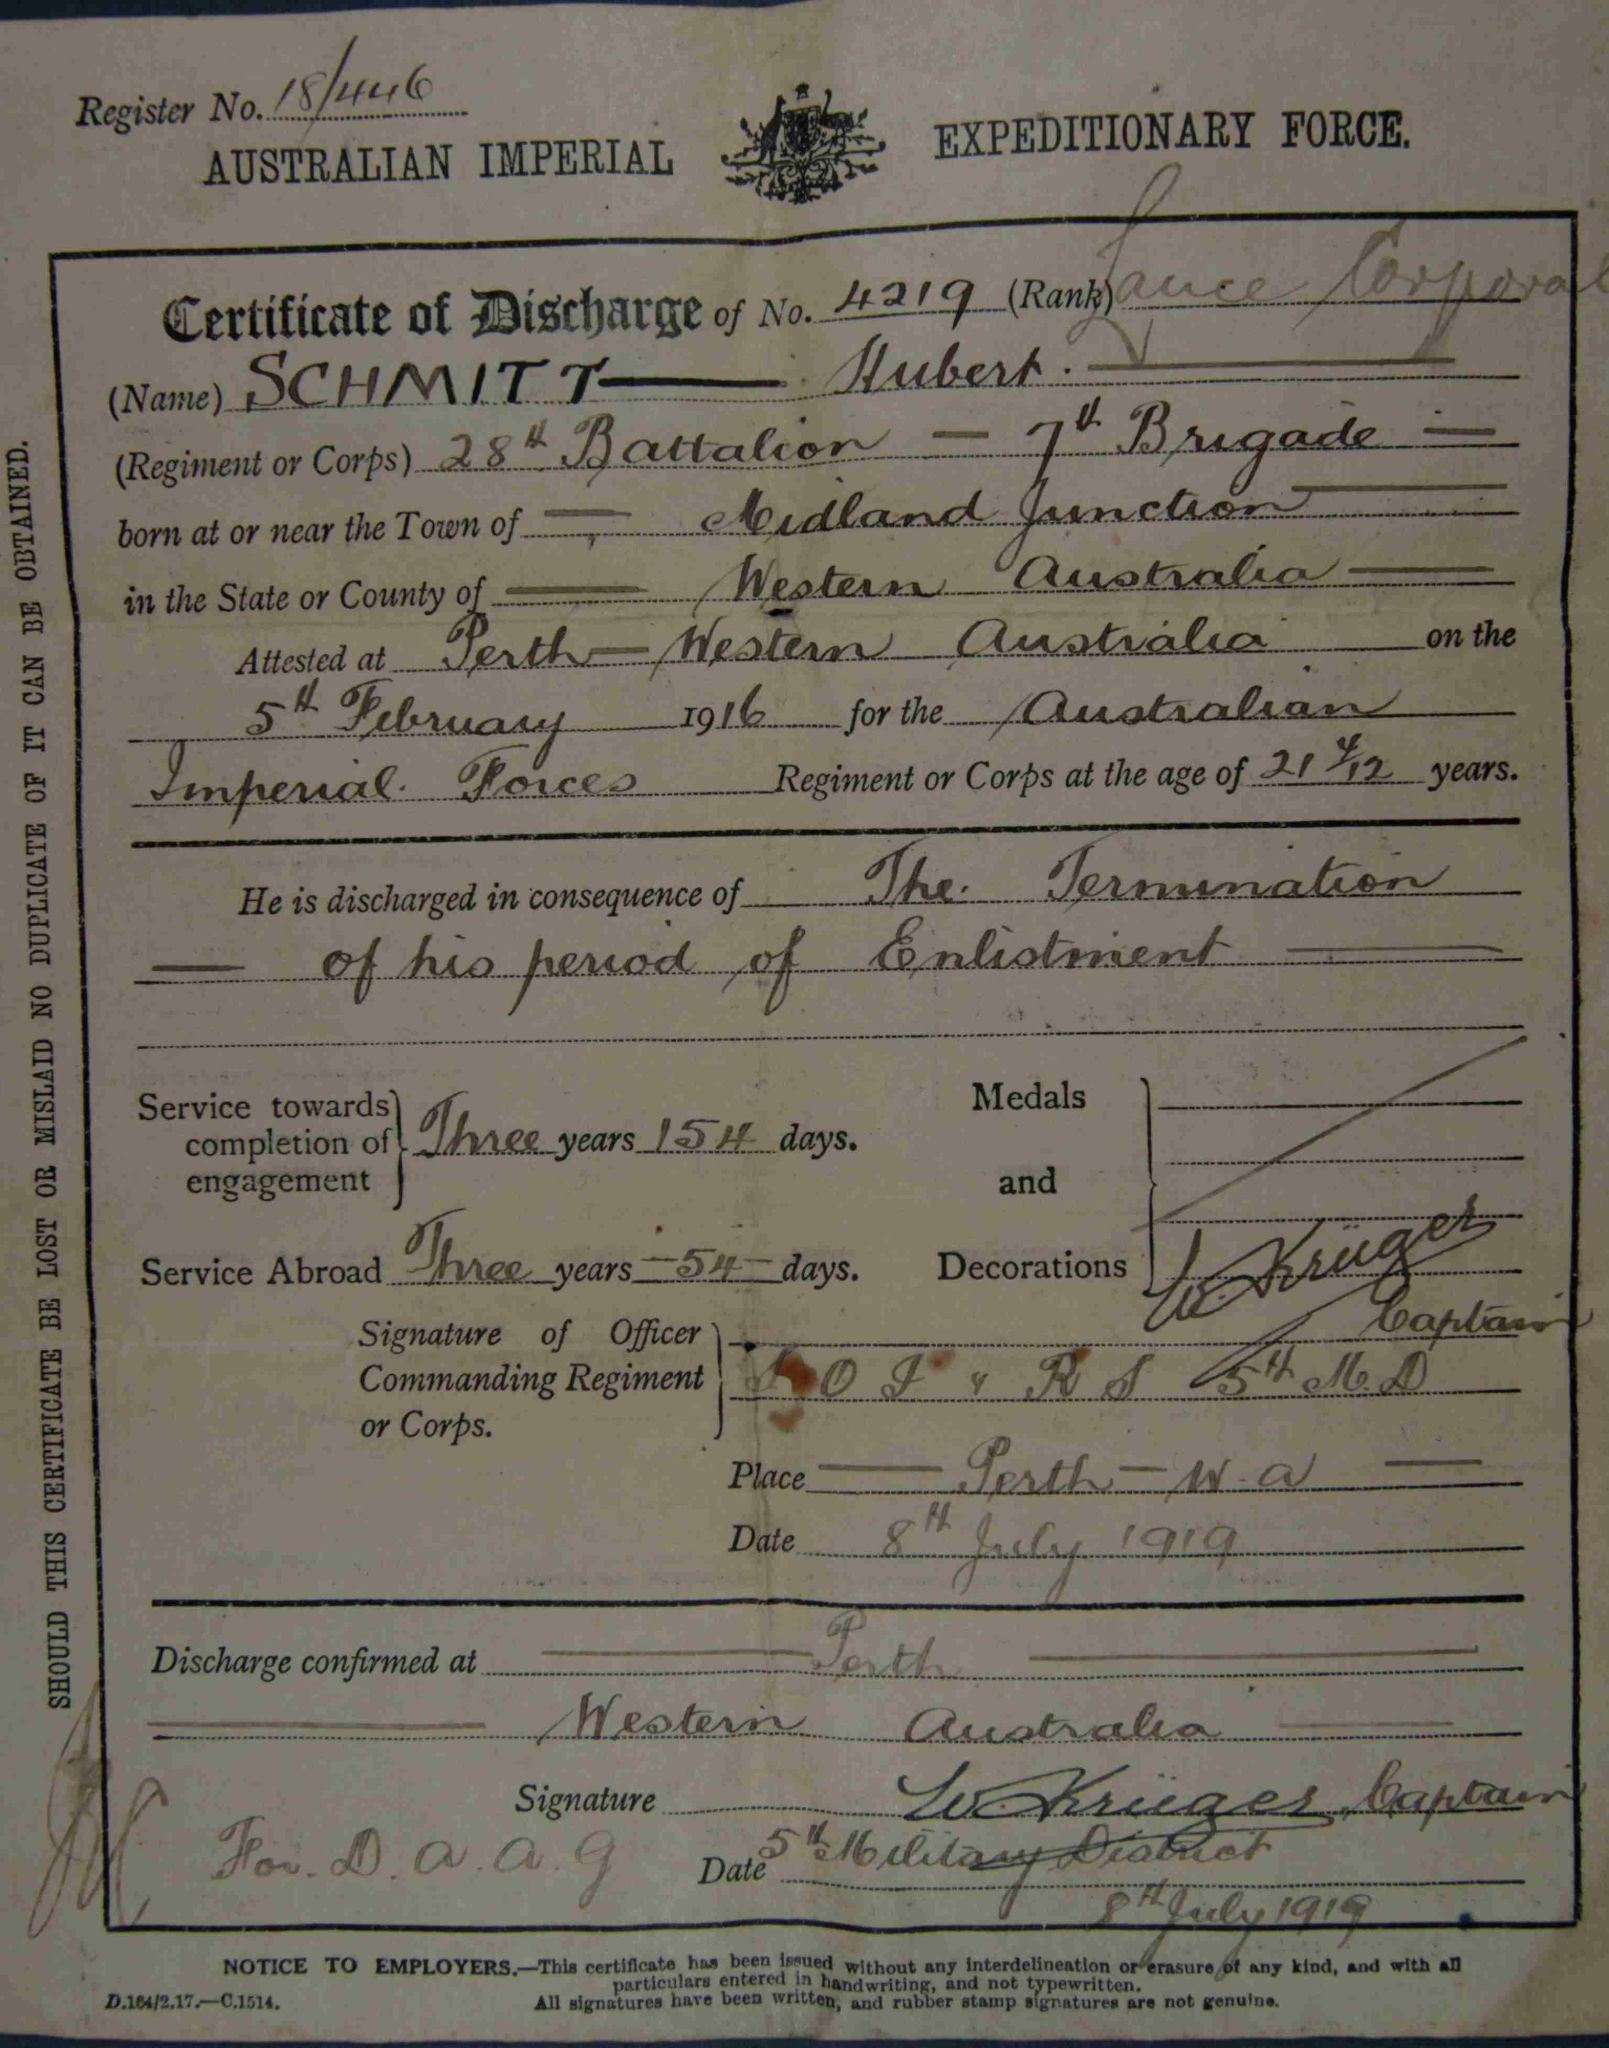 Register No. 18/446
AUSTRALIAN IMPERIAL EXPEDITIONARY FORCE.
Certificate of Discharge of No. 4219 (Rank) Lance Corporal
(Name) SCHMITT Hubert.
(Regiment or Corps) 28th Battalion — 7th Brigade —
born at or near the Town of — Midland Junction —
in the State or County of — Western Australia —
Attested at Perth — Western Australia on the
5th February 1916 for the Australian
Imperial Forces Regiment or Corps at the age of 21 4/12 years.
He is discharged in consequence of The Termination
— of his period of Enlistment —
Service towards completion of engagement } Three years 154 days.
Service Abroad Three years — 54 — days.
Medals and Decorations
W. Krüger
Captain
Signature of Officer Commanding Regiment or Corps.
O I & R S 5th M.D
Place — Perth — W.A —
Date 8th July 1919
Discharge confirmed at — Perth —
— Western Australia —
Signature W. Krüger, Captain
For. D. A. A. G
Date 5th Military District
8th July 1919
NOTICE TO EMPLOYERS.—This certificate has been issued without any interdelineation or erasure of any kind, and with all
particulars entered in handwriting, and not typewritten.
All signatures have been written, and rubber stamp signatures are not genuine.
D.164/2.17.—C.1514.
SHOULD THIS CERTIFICATE BE LOST OR MISLAID NO DUPLICATE OF IT CAN BE OBTAINED.